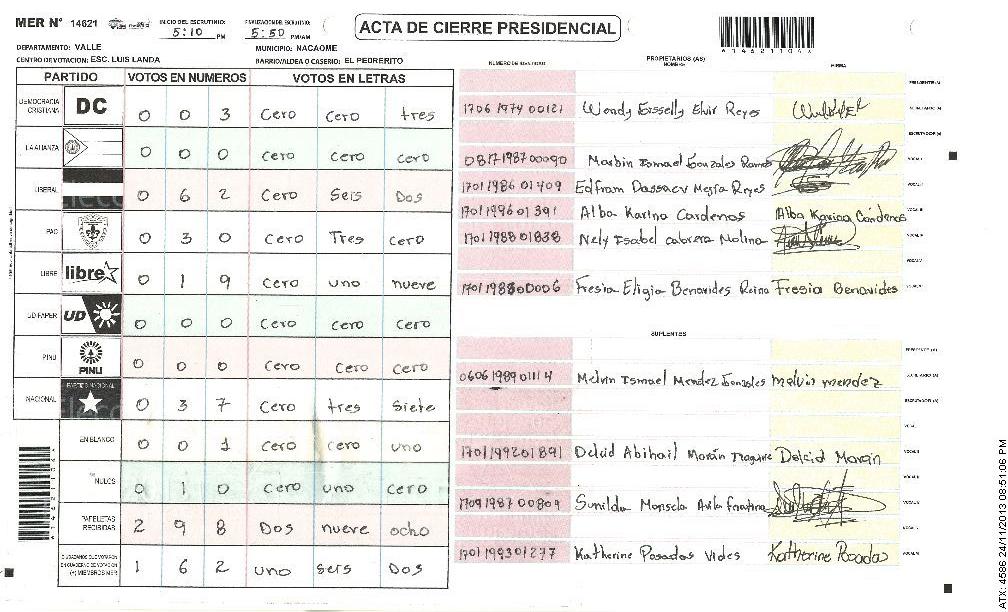 MER N° 14621
INICIO DEL ESCRUTINIO: 5:10 PM
FINALIZACION DEL ESCRUTINIO: 5:50 PM/AM
ACTA DE CIERRE PRESIDENCIAL
DEPARTAMENTO: VALLE
MUNICIPIO: NACAOME
CENTRO DE VOTACION: ESC. LUIS LANDA
BARRIO/ALDEA O CASERIO: EL PEDRERITO
PARTIDO VOTOS EN NUMEROS VOTOS EN LETRAS
DEMOCRACIA CRISTIANA DC 0 0 3 Cero Cero tres
LA ALIANZA 0 0 0 Cero Cero cero
LIBERAL 0 6 2 Cero Seis Dos
PAC 0 3 0 Cero Tres cero
LIBRE libre 0 1 9 Cero uno nueve
UD FAPER UD 0 0 0 Cero Cero Cero
PINU PINU 0 0 0 Cero Cero Cero
NACIONAL PARTIDO NACIONAL 0 3 7 Cero tres Siete
EN BLANCO 0 0 1 Cero Cero uno
NULOS 0 1 0 Cero uno cero
PAPELETAS RECIBIDAS 2 9 8 Dos nueve ocho
CIUDADANOS QUE VOTARON EN CUADERNO DE VOTACION (+) MIEMBROS MER 1 6 2 uno seis Dos
NUMERO DE IDENTIDAD
PROPIETARIOS (AS)
NOMBRE
FIRMA
1706 1974 00121 Wendy Eisselly Elvir Reyes
0817 1987 00090 Marbin Ismael Gonzales Ramos
1701 1986 01409 Edfram Dassaev Mejia Reyes
1701 1996 01391 Alba Karina Cardenas Alba Karina Cárdenas
1701 1988 01838 Nely Isabel cabrera Molina
1701 1988 00006 Fresia Eligia Benavides Reina Fresia Benavides
SUPLENTES
0606 1989 01114 Melvin Ismael Mendez Gonzales melvin mendez
1701 1992 01891 Delcid Abihail Morán Delcid Morán
1709 1987 00809 Sunilda Avila
1701 1993 01277 Katherine Posadas Vides Katherine Posadas
ATX: 4586 24/11/2013 08:51:06 PM